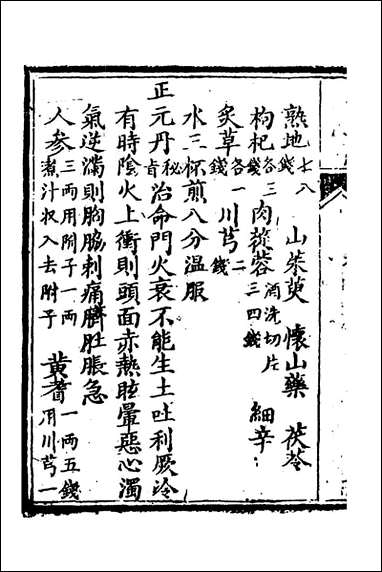 熟地七八錢 山茱萸 懷山藥 茯苓
枸杞各三錢 肉蓯蓉酒洗切片三四錢 細辛
炙草各一錢 川芎二錢
水三杯煎八分温服
正元丹秘旨治命門火衰不能生土吐利厥冷
有時陰火上衝則頭面赤熱眩暈惡心濁
氣逆滿則胸脇刺痛臍肚脹急
人參三兩用附子一兩煮汁收入去附子 黃蓍一兩五錢用川芎一